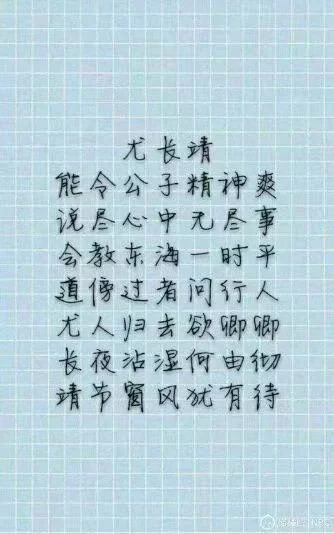 尤长靖
能令公子精神爽
说尽心中无尽事
会教东海一时平
道傍过者问行人
尤人归去欲卿卿
长夜沾湿何由彻
靖节窗风犹有待